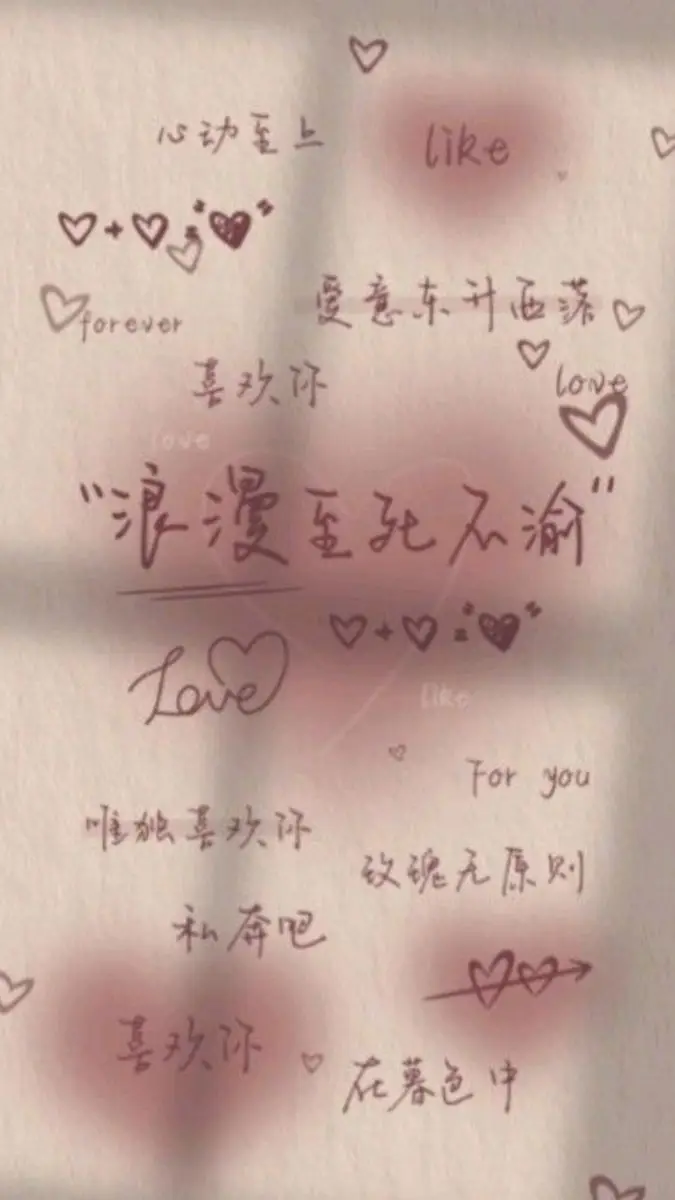 心动至上
like
forever
爱意东升西落
喜欢你
love
love
“浪漫至死不渝”
Love
like
For you
唯独喜欢你
玫瑰无原则
私奔吧
喜欢你
在暮色中